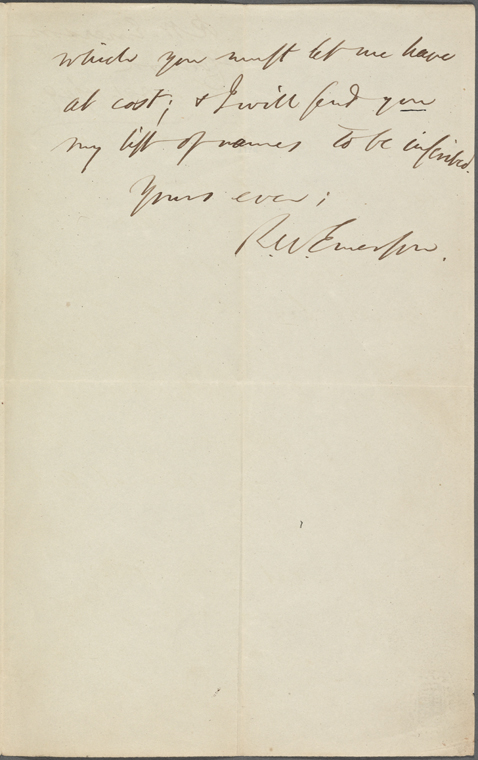 which you must let me have
at cost; & I will send you
my list of names to be inscribed.
Yours ever;
R.W. Emerson.